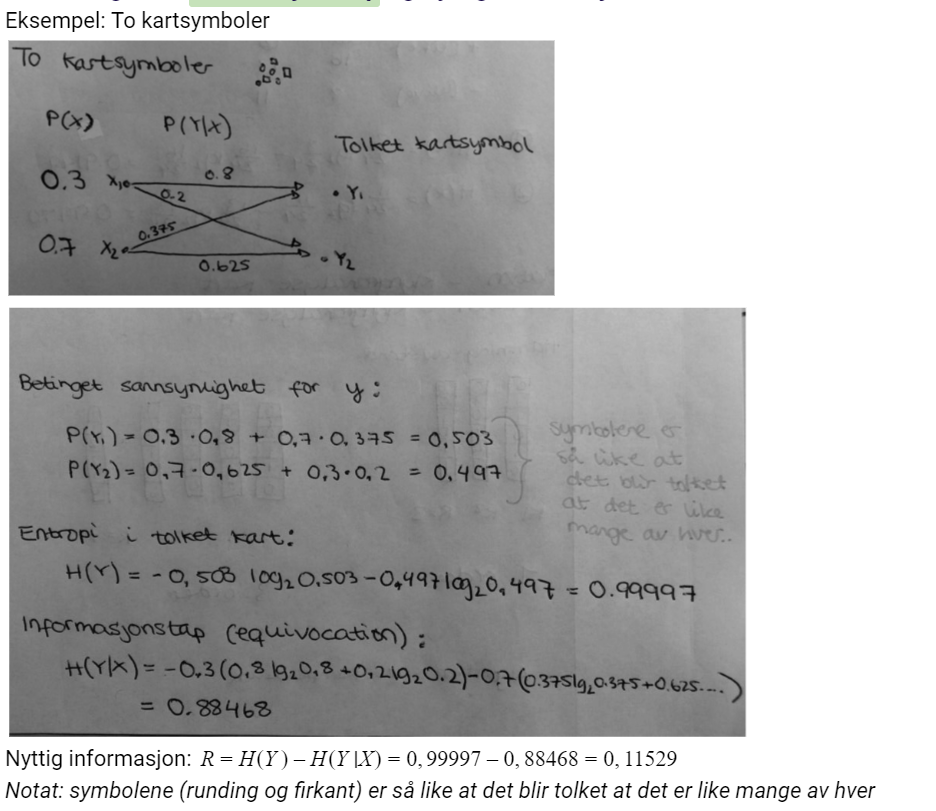 Eksempel: To kartsymboler
To kartsymboler
P(X) P(Y|X)
Tolket kartsymbol
0.3 X₁ 0.8 Y₁
0.2
0.375
0.7 X₂ 0.625 Y₂
Betinget sannsynlighet for y:
P(Y₁) = 0.3 · 0,8 + 0,7 · 0,375 = 0,503
P(Y₂) = 0,7 · 0,625 + 0,3 · 0,2 = 0,497
symbolene er
så like at
det blir tolket
at det er like
mange av hver..
Entropi i tolket kart:
H(Y) = - 0,503 log₂ 0.503 - 0,497 log₂ 0,497 = 0.99997
Informasjonstap (equivocation):
H(Y|X) = -0.3 (0,8 lg₂ 0,8 + 0,2 lg₂ 0.2) - 0.7 (0.375 lg₂ 0.375 + 0.625....)
= 0.88468
Nyttig informasjon: R = H(Y) – H(Y |X) = 0, 99997 – 0, 88468 = 0, 11529
Notat: symbolene (runding og firkant) er så like at det blir tolket at det er like mange av hver